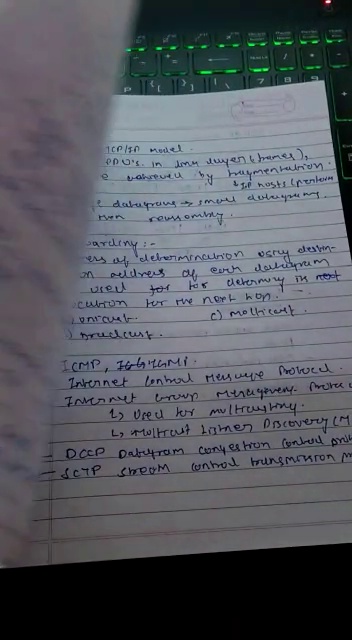 TCP/IP model.
PDU's in link layer (frames),
achieved by fragmentation.
↳ IP hosts (perform
datagrams → small datagrams.
reassembly.
warding :-
ess of determination using destin-
on address of each datagram
used for to determine is next
cation for the next hop.
unicast. c) multicast.
) Broadcast.
ICMP, IGMP.
Internet Control Message Protocol.
Internet Group Management Protoc
↳ Used for multicasting.
↳ Multicast Listner Discovery (M
- DCCP Datagram congestion control prot
- SCTP Stream control transmission